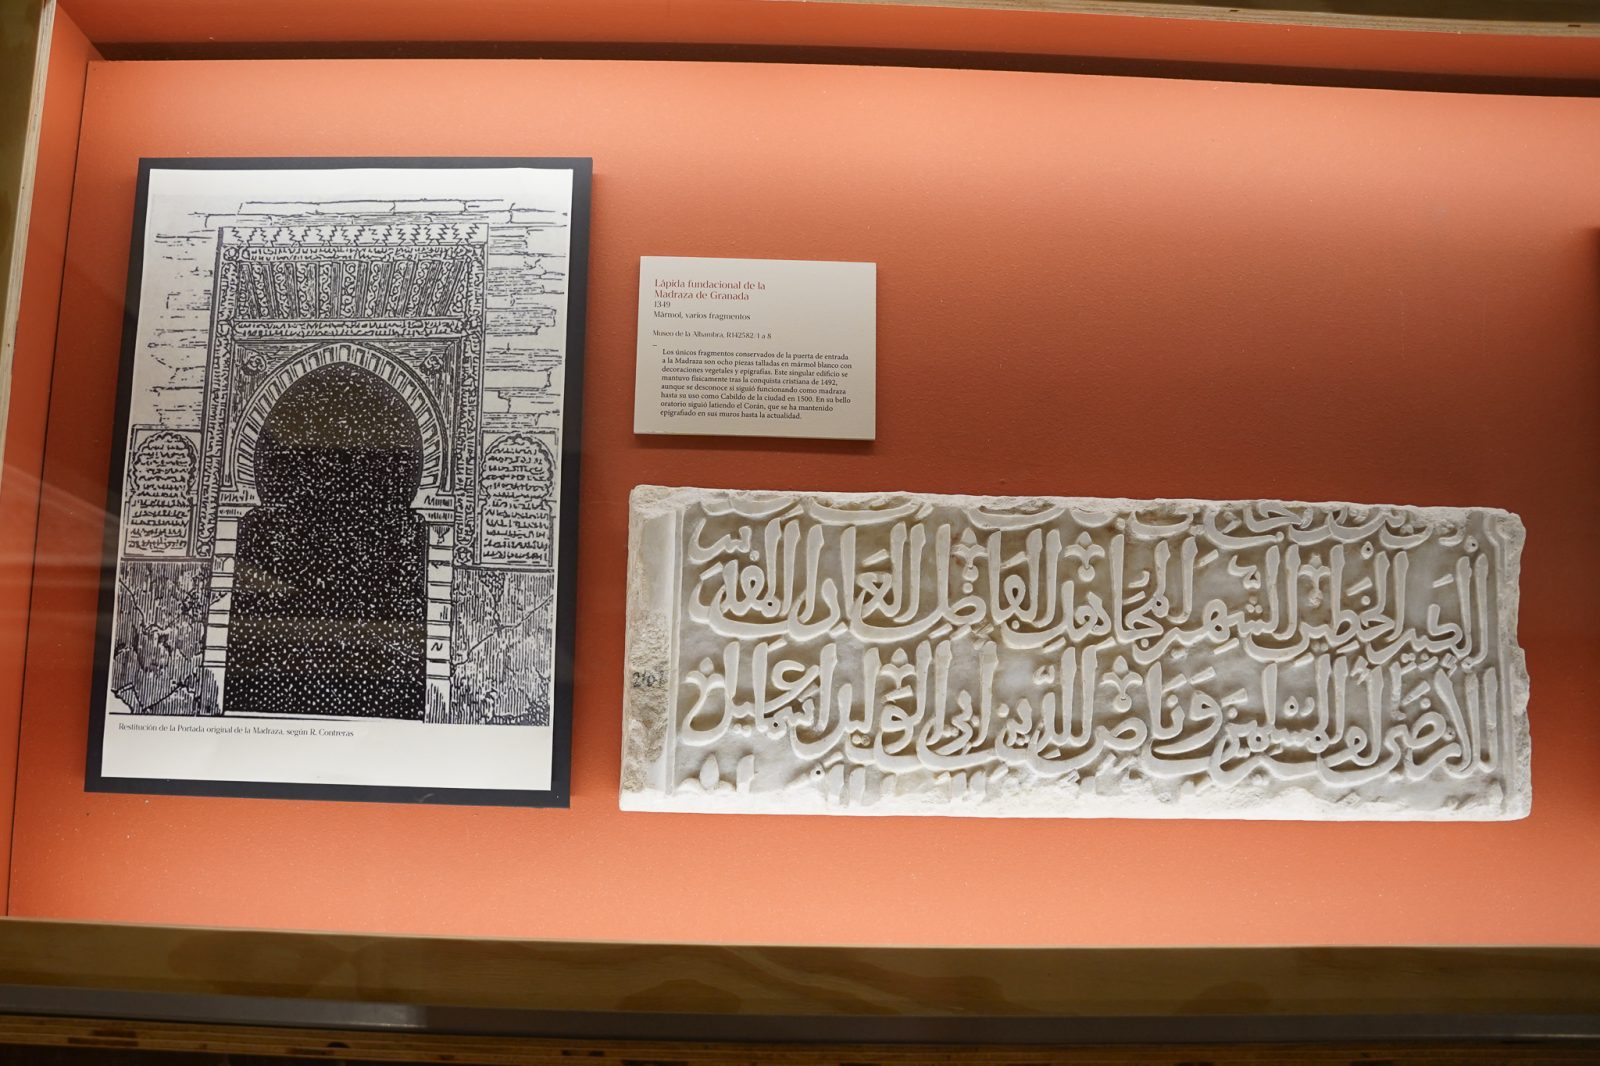 Lápida fundacional de la
Madraza de Granada
1349
Mármol, varios fragmentos
Museo de la Alhambra, R142582/1 a 8
–
Los únicos fragmentos conservados de la puerta de entrada
a la Madraza son ocho piezas talladas en mármol blanco con
decoraciones vegetales y epigrafías. Este singular edificio se
mantuvo físicamente tras la conquista cristiana de 1492,
aunque se desconoce si siguió funcionando como madraza
hasta su uso como Cabildo de la ciudad en 1500. En su bello
oratorio siguió latiendo el Corán, que se ha mantenido
epigrafiado en sus muros hasta la actualidad.
Restitución de la Portada original de la Madraza, según R. Contreras
الكبير الخطير الشهير المجاهد الفاضل العادل المقدس
الأرضى أمير المسلمين وناصر الدين أبي الوليد إسماعيل بن